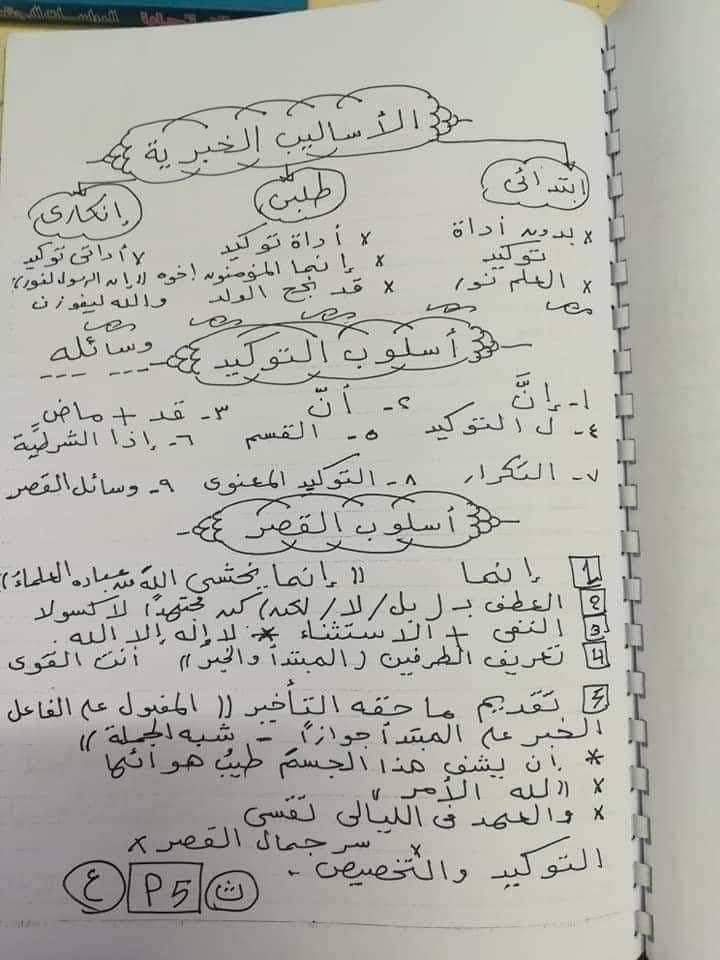 الأساليب الخبرية
ابتدائى طلبى إنكارى
x بدون أداة توكيد x أداة توكيد x أداتى توكيد
x العلم نور x إنما المؤمنون إخوه ((إن الرسول لنور))
x قد نجح الولد والله ليفوزن
أسلوب التوكيد وسائله
١- إنَّ ٢- أنّ ٣- قد + ماضٍ
٤- ل التوكيد ٥- القسم ٦- إذا الشرطية
٧- التكرار ٨- التوكيد المعنوى ٩- وسائل القصر
أسلوب القصر
1 إنما ((إنما يخشى الله من عباده العلماءُ))
2 العطف بـ (بل/لا/لكن) كن مجتهدًا لا كسولا
3 النفى + الاستثناء * لا إله إلا الله
4 تعريف الطرفين (المبتدأ والخبر)) أنت القوى
5 تقديم ما حقه التأخير ((المفعول على الفاعل
الخبر على المبتدأ جوازًا - شبه الجملة))
* إن يشف هذا الجسمَ طيبُ هوائها
x ((لله الأمر))
x والعهد فى الليالى تقسى
x سر جمال القصر x
التوكيد والتخصيص.
ث P5 ع